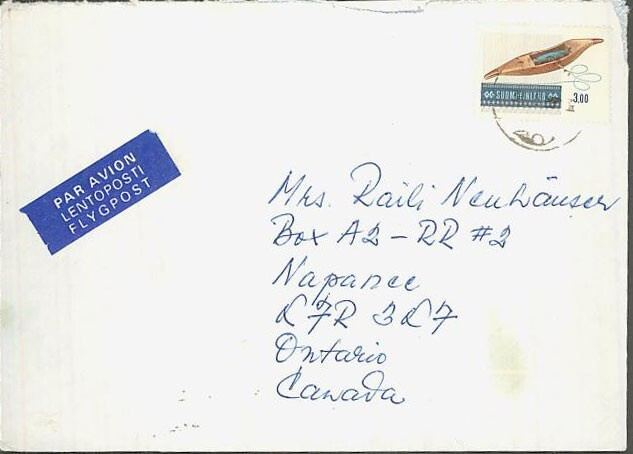 SUOMI-FINLAND
3,00
PAR AVION
LENTOPOSTI
FLYGPOST
Mrs. Raili Neuhäuser
Box A2 - RR #2
Napanee
K7R 3K7
Ontario
Canada